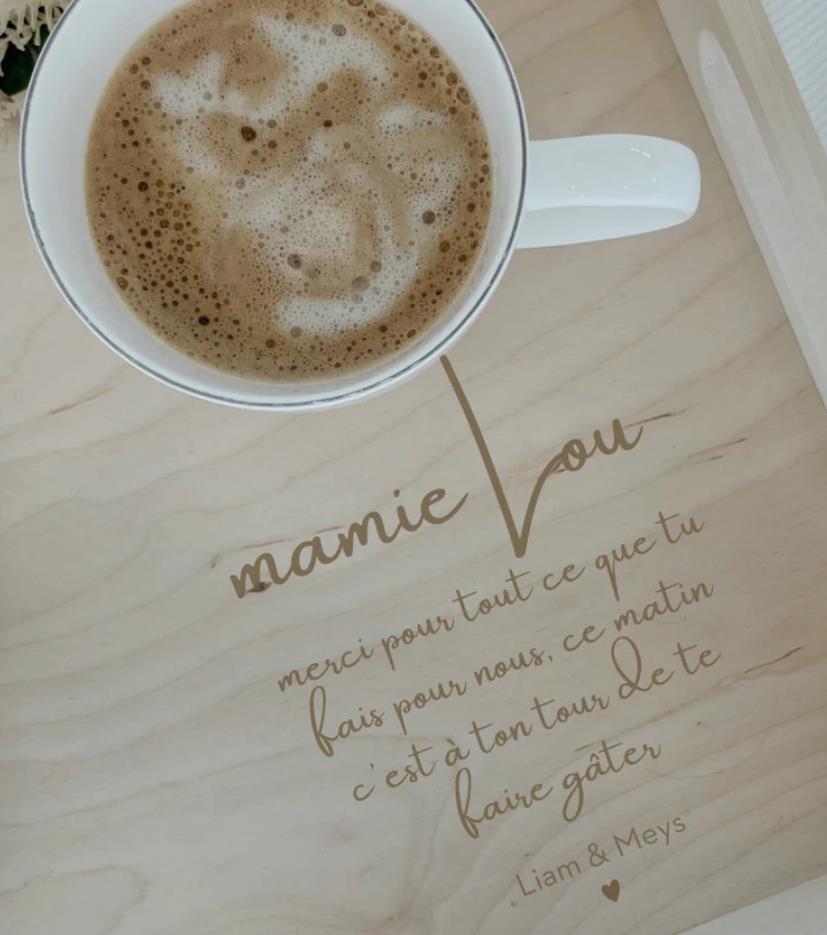 mamie Lou
merci pour tout ce que tu
fais pour nous, ce matin
c'est à ton tour de te
faire gâter
Liam & Meys